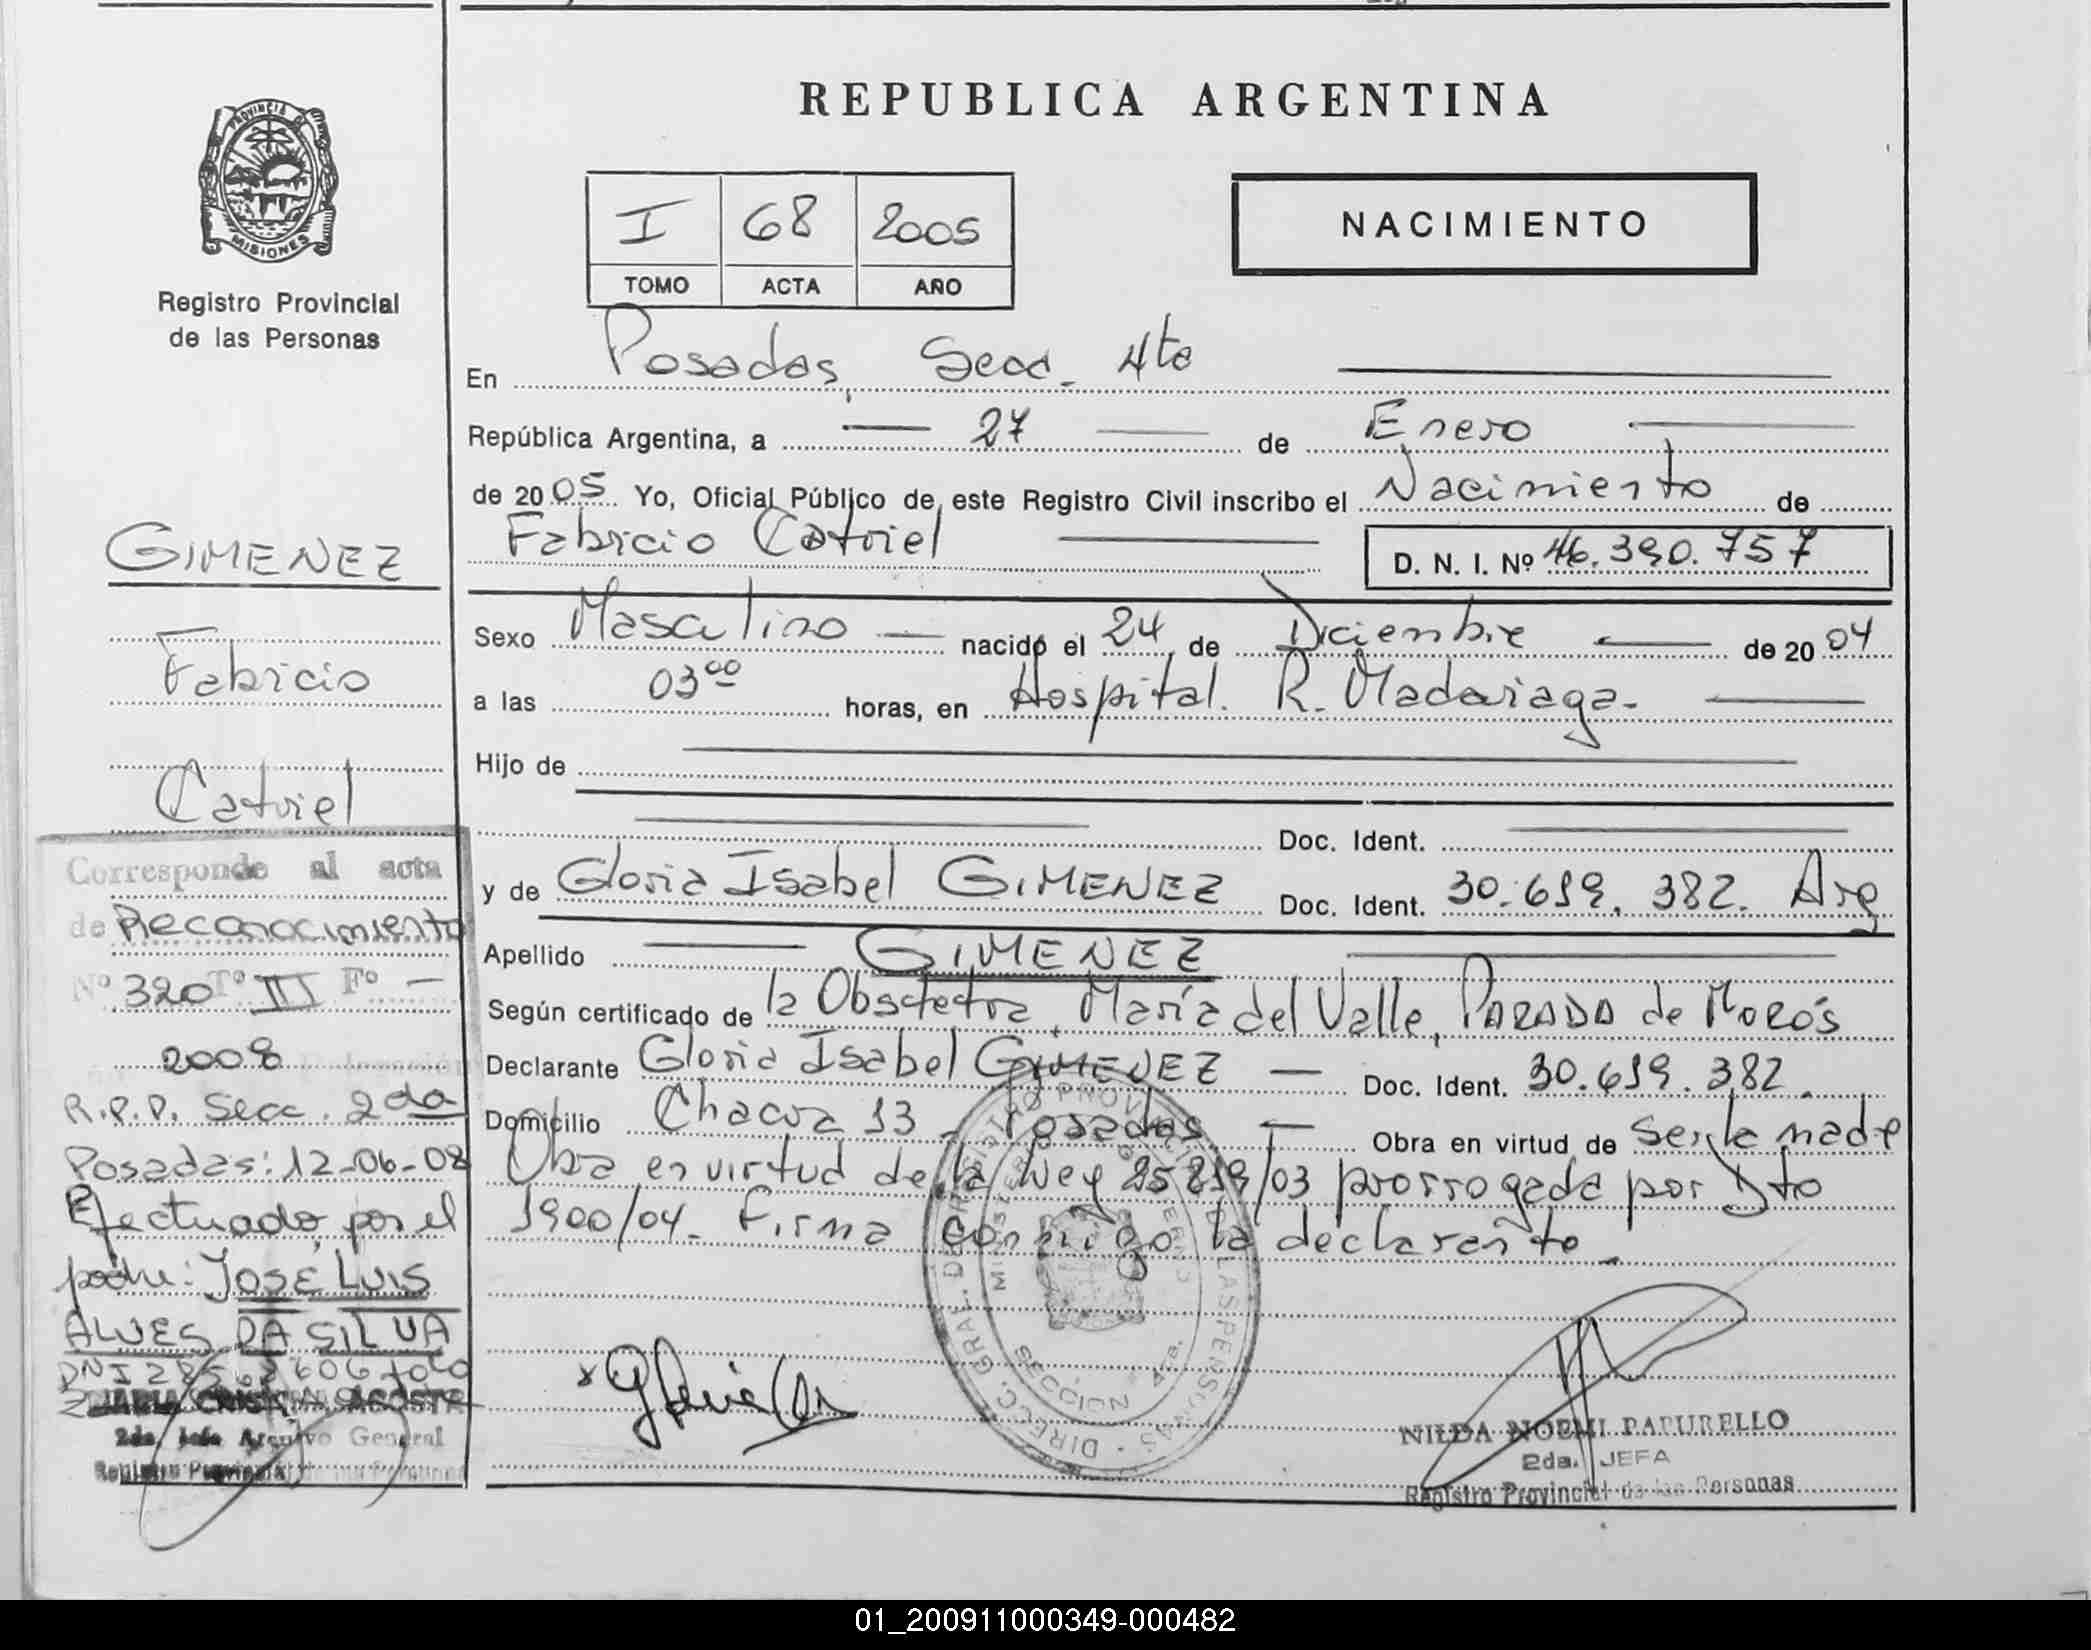 REPUBLICA ARGENTINA
PROVINCIA DE
MISIONES
Registro Provincial
de las Personas
I 68 2005
TOMO ACTA AÑO
NACIMIENTO
En Posadas, Secc. 4ta
República Argentina, a 27 de Enero
de 2005 Yo, Oficial Público de este Registro Civil inscribo el Nacimiento de
Fabricio Catriel
D. N. I. Nº 46.390.757
Sexo Masculino nacido el 24 de Diciembre de 2004
a las 03 00 horas, en Hospital. R. Madariaga.
Hijo de
Doc. Ident.
y de Gloria Isabel GIMENEZ Doc. Ident. 30.619.382. Arg
Apellido GIMENEZ
Según certificado de la Obstetra, María del Valle, PARADA de Morós
Declarante Gloria Isabel GIMENEZ Doc. Ident. 30.619.382.
Domicilio Chacra 13 - Posadas Obra en virtud de ser la madre
Obra en virtud de la Ley 25819/03 prorrogada por Dto
1900/04. Firma conmigo la declarante.
GIMENEZ
Fabricio
Catriel
Corresponde al acta
de Reconocimiento
Nº 320 Tº III Fº -
2008
R.P.P. Secc. 2da
Posadas: 12-06-08
Efectuado por el
padre: JOSÉ LUIS
ALVES DA SILVA
DNI
MARIA CRISTINA ACOSTA
2da. Jefa Archivo General
Registro Provincial de las Personas
SECCION 4ta.
NILDA NOEMI PAPURELLO
2da. JEFA
Registro Provincial de las Personas
01_200911000349-000482